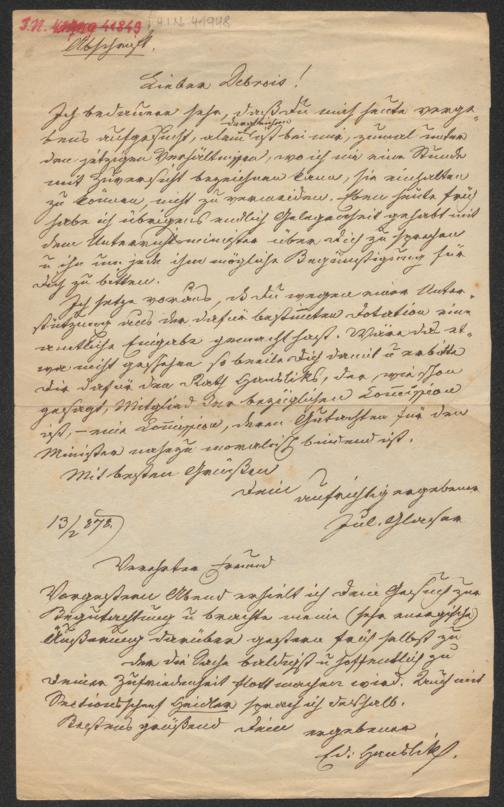 I.N. 41849
H.I.N. 41948
Abschrift.
Lieber Debrois!
Ich bedauere sehr, daß Du mich heute verge-
bens aufgesucht, allein ist bei mir, zumal unter
dergleichen
den jetzigen Verhältnissen, wo ich nie eine Stunde
mit Zuversicht bezeichnen kann, sie einhalten
zu können, nicht zu vermeiden. Eben heute früh
habe ich übrigens endlich Gelegenheit gehabt mit
dem Unterrichtsminister über Dich zu sprechen
u ihn um jede ihm mögliche Begünstigung für
Dich zu bitten.
Ich setze voraus, dß Du wegen einer Unter-
stützung aus der dafür bestimmten Dotation eine
amtliche Eingabe gemacht hast. Wäre dß et-
wa nicht geschehen so beeile Dich damit u erbitte
Dir dafür den Rath Hansliks, der, wie schon
gesagt, Mitglied der bezüglichen Comission
ist, – eine Comission, deren Gutachten für den
Minister nahezu moralisch bindend ist.
Mit besten Grüßen
Dein aufrichtig ergebener
Jul. Glaser
13/2 872
Verehrter Freund
Vorgestern Abend erhielt ich Dein Gesuch zur
Begutachtung u brachte meine (sehr energische)
Äußerung darüber gestern früh selbst zu
der die Sache baldigst u hoffentlich zu
Deiner Zufriedenheit flott machen wird. Auch mit
Sectionschef Heidler sprach ich deshalb.
Bestens grüßend Dein ergebener
Ed. Hanslik